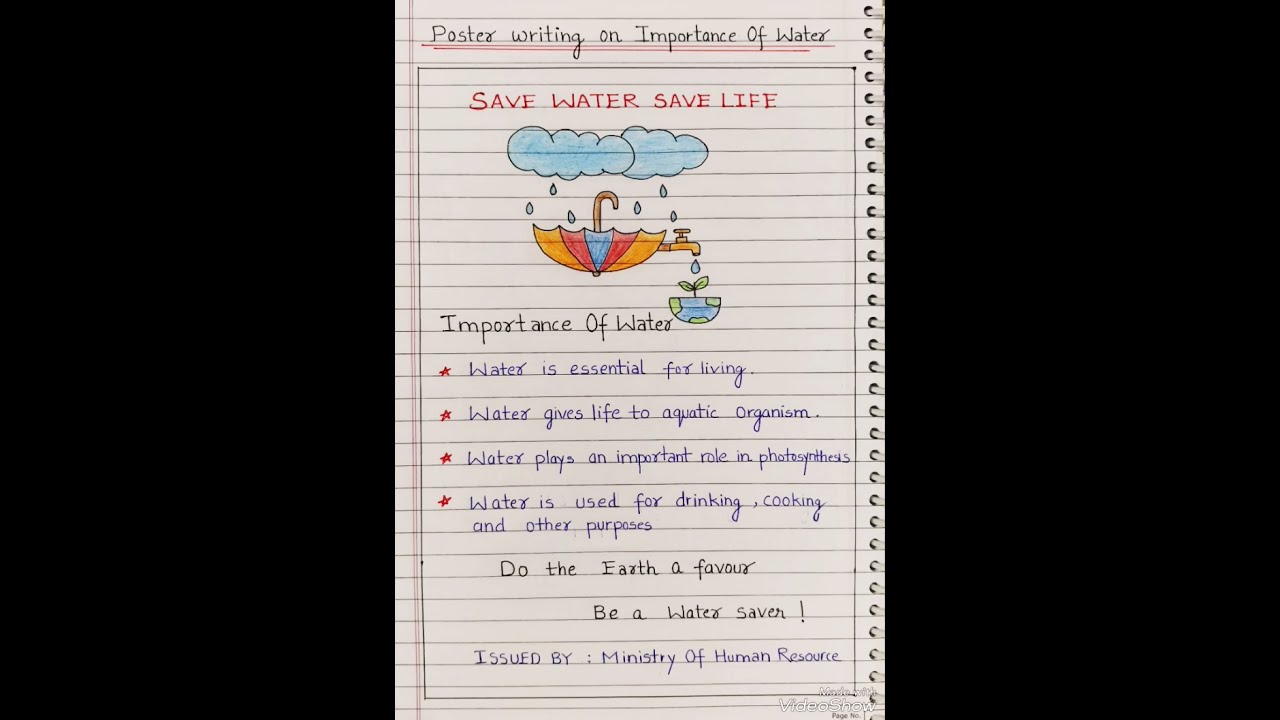 Poster writing on Importance Of Water
SAVE WATER SAVE LIFE
Importance Of Water
Water is essential for living.
Water gives life to aquatic organism.
Water plays an important role in photosynthesis
Water is used for drinking, cooking
and other purposes
Do the Earth a favour
Be a Water saver!
ISSUED BY : Ministry Of Human Resource
Made with
VideoShow
Page No.